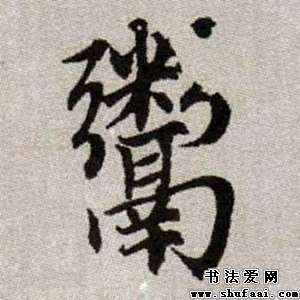 鬻
书法爱网
www.shufaai.com